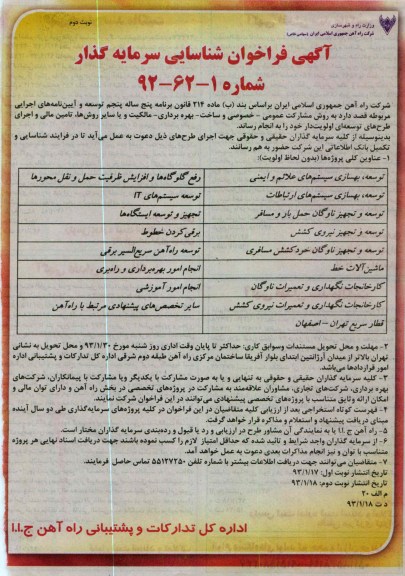 نوبت دوم
وزارت راه و شهرسازی
شرکت راه آهن جمهوری اسلامی ایران (سهامی خاص)
آگهی فراخوان شناسایی سرمایه گذار
شماره ۱-۶۲-۹۲
شرکت راه آهن جمهوری اسلامی ایران براساس بند (ب) ماده ۲۱۴ قانون برنامه پنج ساله پنجم توسعه و آیین‌نامه‌های اجرایی
مربوطه قصد دارد به روش مشارکت عمومی - خصوصی و ساخت- بهره برداری- مالکیت و یا سایر روش‌ها، تامین مالی و اجرای
طرح‌های توسعه‌ای اولویت‌دار خود را به انجام رساند.
بدینوسیله از کلیه سرمایه گذاران حقیقی و حقوقی جهت اجرای طرح‌های ذیل دعوت به عمل می‌آید تا در فرایند شناسایی و
تکمیل بانک اطلاعاتی این شرکت حضور به هم رسانند.
۱- عناوین کلی پروژه‌ها (بدون لحاظ اولویت):
توسعه، بهسازی سیستم‌های علائم و ایمنی رفع گلوگاه‌ها و افزایش ظرفیت حمل و نقل محورها
توسعه، بهسازی سیستم‌های ارتباطات توسعه سیستم‌های IT
توسعه و تجهیز ناوگان حمل بار و مسافر تجهیز و توسعه ایستگاه‌ها
توسعه و تجهیز نیروی کشش برقی‌کردن خطوط
توسعه و تجهیز ناوگان خودکشش مسافری توسعه راه‌آهن سریع‌السیر برقی
ماشین‌آلات خط انجام امور بهره‌برداری و راه‌بری
کارخانجات نگهداری و تعمیرات ناوگان انجام امور آموزشی
کارخانجات نگهداری و تعمیرات نیروی کشش سایر تخصص‌های پیشنهادی مرتبط با راه‌آهن
قطار سریع تهران - اصفهان
۲- مهلت و محل تحویل مستندات وسوابق کاری: حداکثر تا پایان وقت اداری روز شنبه مورخ ۹۳/۱/۳۰ و محل تحویل به نشانی
تهران بالاتر از میدان آرژانتین ابتدای بلوار آفریقا ساختمان مرکزی راه آهن طبقه دوم شرقی اداره کل تدارکات و پشتیبانی اداره
امور قراردادها می‌باشد.
۳- کلیه سرمایه گذاران حقیقی و حقوقی به تنهایی و یا به صورت مشارکت با یکدیگر ویا مشارکت با پیمانکاران، شرکت‌های
بهره برداری، شرکت‌های تجاری، مشاوران علاقه‌مند به مشارکت در پروژه‌های تخصصی در بخش راه آهن و دارای توان مالی و
امکان ارائه وثایق متناسب با پروژه‌های تخصصی پیشنهادی می‌توانند در این فراخوان شرکت نمایند.
۴- فهرست کوتاه استخراجی بعد از ارزیابی کلیه متقاضیان در این فراخوان در کلیه پروژه‌های سرمایه‌گذاری طی دو سال آینده
مبنای دریافت پیشنهاد و استعلام و مذاکره قرار خواهد گرفت.
۵- راه آهن ج.ا.ا یا به نمایندگی آن مشاور طرح در ارزیابی و رد یا قبول و رده‌بندی سرمایه گذاران مختار است.
۶- از سرمایه گذاران واجد شرایط و تائید شده که حداقل امتیاز لازم را کسب نموده باشند جهت دریافت اسناد نهایی هر پروژه
متناسب با توان و نیز انجام مذاکرات بعدی دعوت به عمل خواهد آمد.
۷- متقاضیان می‌توانند جهت دریافت اطلاعات بیشتر با شماره تلفن ۵۵۱۲۷۲۵۰ تماس حاصل فرمایند.
تاریخ انتشار نوبت اول: ۹۳/۱/۱۷
تاریخ انتشار نوبت دوم: ۹۳/۱/۱۸
م الف ۲۰
د ت ۹۳/۱/۱۸
اداره کل تدارکات و پشتیبانی راه آهن ج.ا.ا